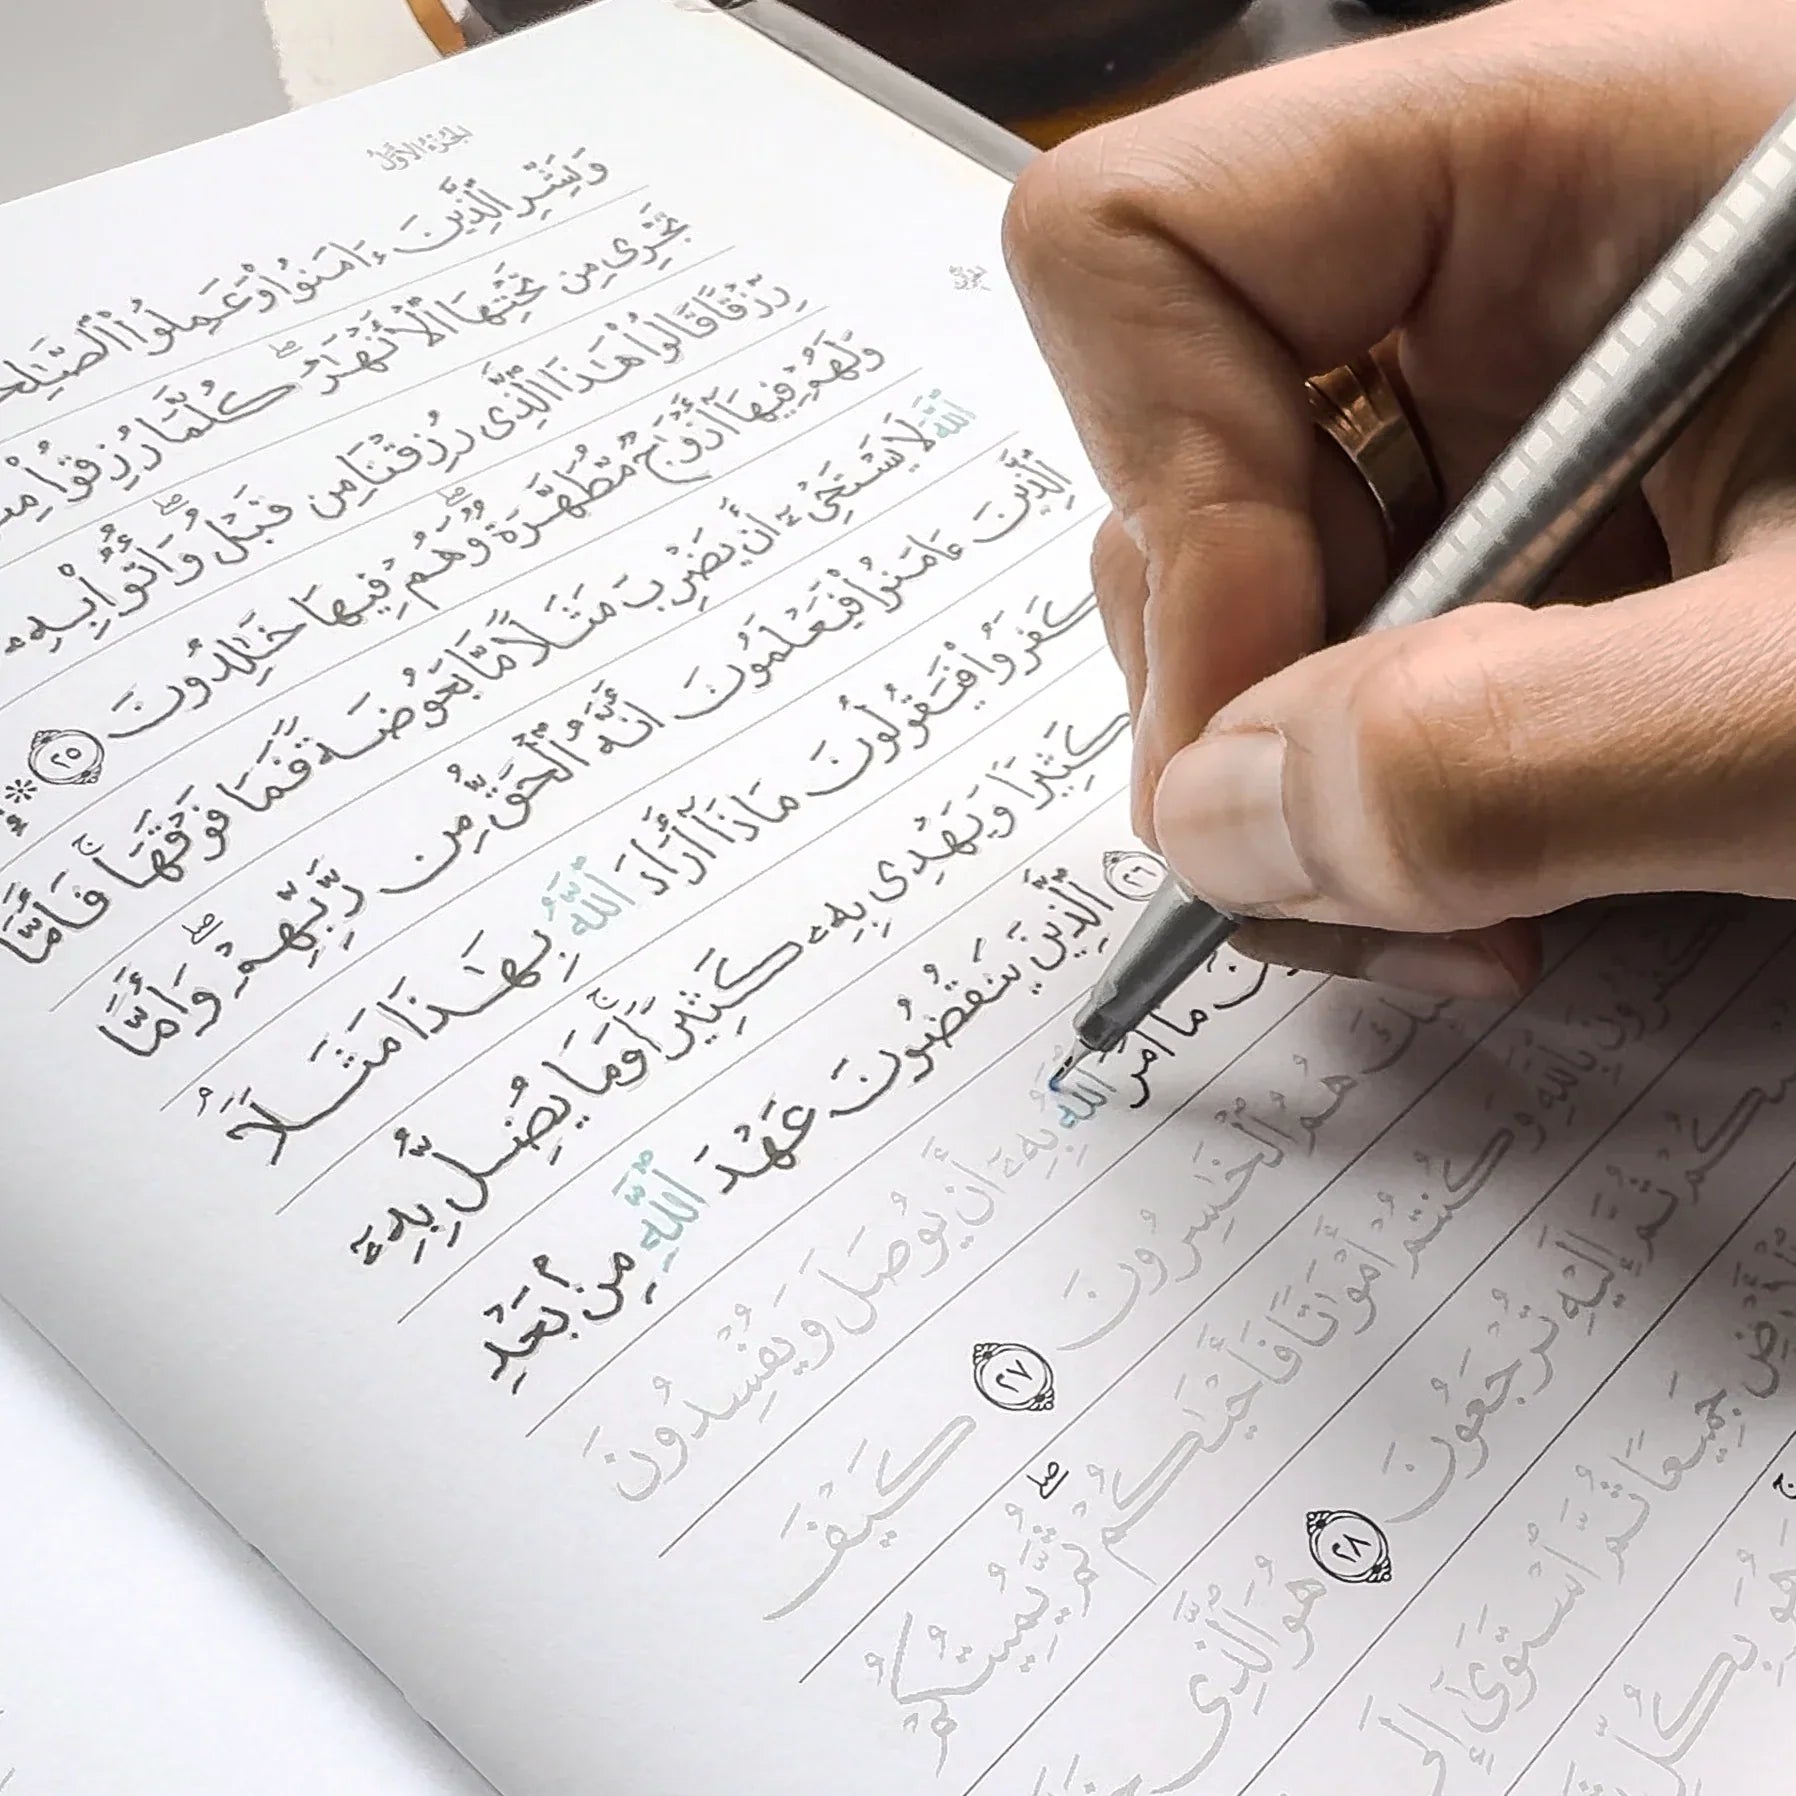 الجزء الأول
وَبَشِّرِ ٱلَّذِينَ ءَامَنُوا۟ وَعَمِلُوا۟ ٱلصَّـٰلِحَـ
تَجْرِى مِن تَحْتِهَا ٱلْأَنْهَـٰرُ ۖ كُلَّمَا رُزِقُوا۟ مِنْـ
رِّزْقًا قَالُوا۟ هَـٰذَا ٱلَّذِى رُزِقْنَا مِن قَبْلُ ۖ وَأُتُوا۟ بِهِۦ
وَلَهُمْ فِيهَآ أَزْوَٰجٌ مُّطَهَّرَةٌ ۖ وَهُمْ فِيهَا خَـٰلِدُونَ ٢٥
ٱللَّهَ لَا يَسْتَحْىِۦٓ أَن يَضْرِبَ مَثَلًا مَّا بَعُوضَةً فَمَا فَوْقَهَا ۚ فَأَمَّا
ٱلَّذِينَ ءَامَنُوا۟ فَيَعْلَمُونَ أَنَّهُ ٱلْحَقُّ مِن رَّبِّهِمْ ۖ وَأَمَّا
كَفَرُوا۟ فَيَقُولُونَ مَاذَآ أَرَادَ ٱللَّهُ بِهَـٰذَا مَثَلًا ۘ
كَثِيرًا وَيَهْدِى بِهِۦ كَثِيرًا ۚ وَمَا يُضِلُّ بِهِۦٓ
٢٦ ٱلَّذِينَ يَنقُضُونَ عَهْدَ ٱللَّهِ مِنۢ بَعْدِ
مَآ أَمَرَ ٱللَّهُ بِهِۦٓ أَن يُوصَلَ وَيُفْسِدُونَ
هُمُ ٱلْخَـٰسِرُونَ ٢٧ كَيْفَ
تَكْفُرُونَ بِٱللَّهِ وَكُنتُمْ أَمْوَٰتًا فَأَحْيَـٰكُمْ ۖ ثُمَّ يُمِيتُكُمْ
ثُمَّ إِلَيْهِ تُرْجَعُونَ ٢٨ هُوَ ٱلَّذِى
جَمِيعًا ثُمَّ ٱسْتَوَىٰٓ إِلَى
بِكُلِّ